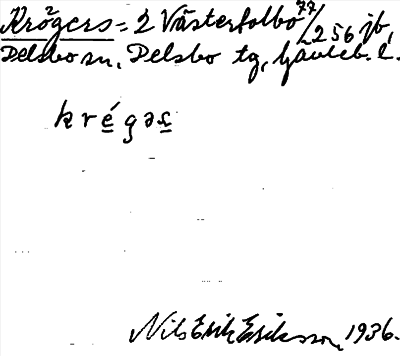 Krögers = 2 Västerfolbo 77/256 jb,
Delsbo sn, Delsbo tg, Gävleb. l.
krégəs
Nils Erik Eriksson 1936.